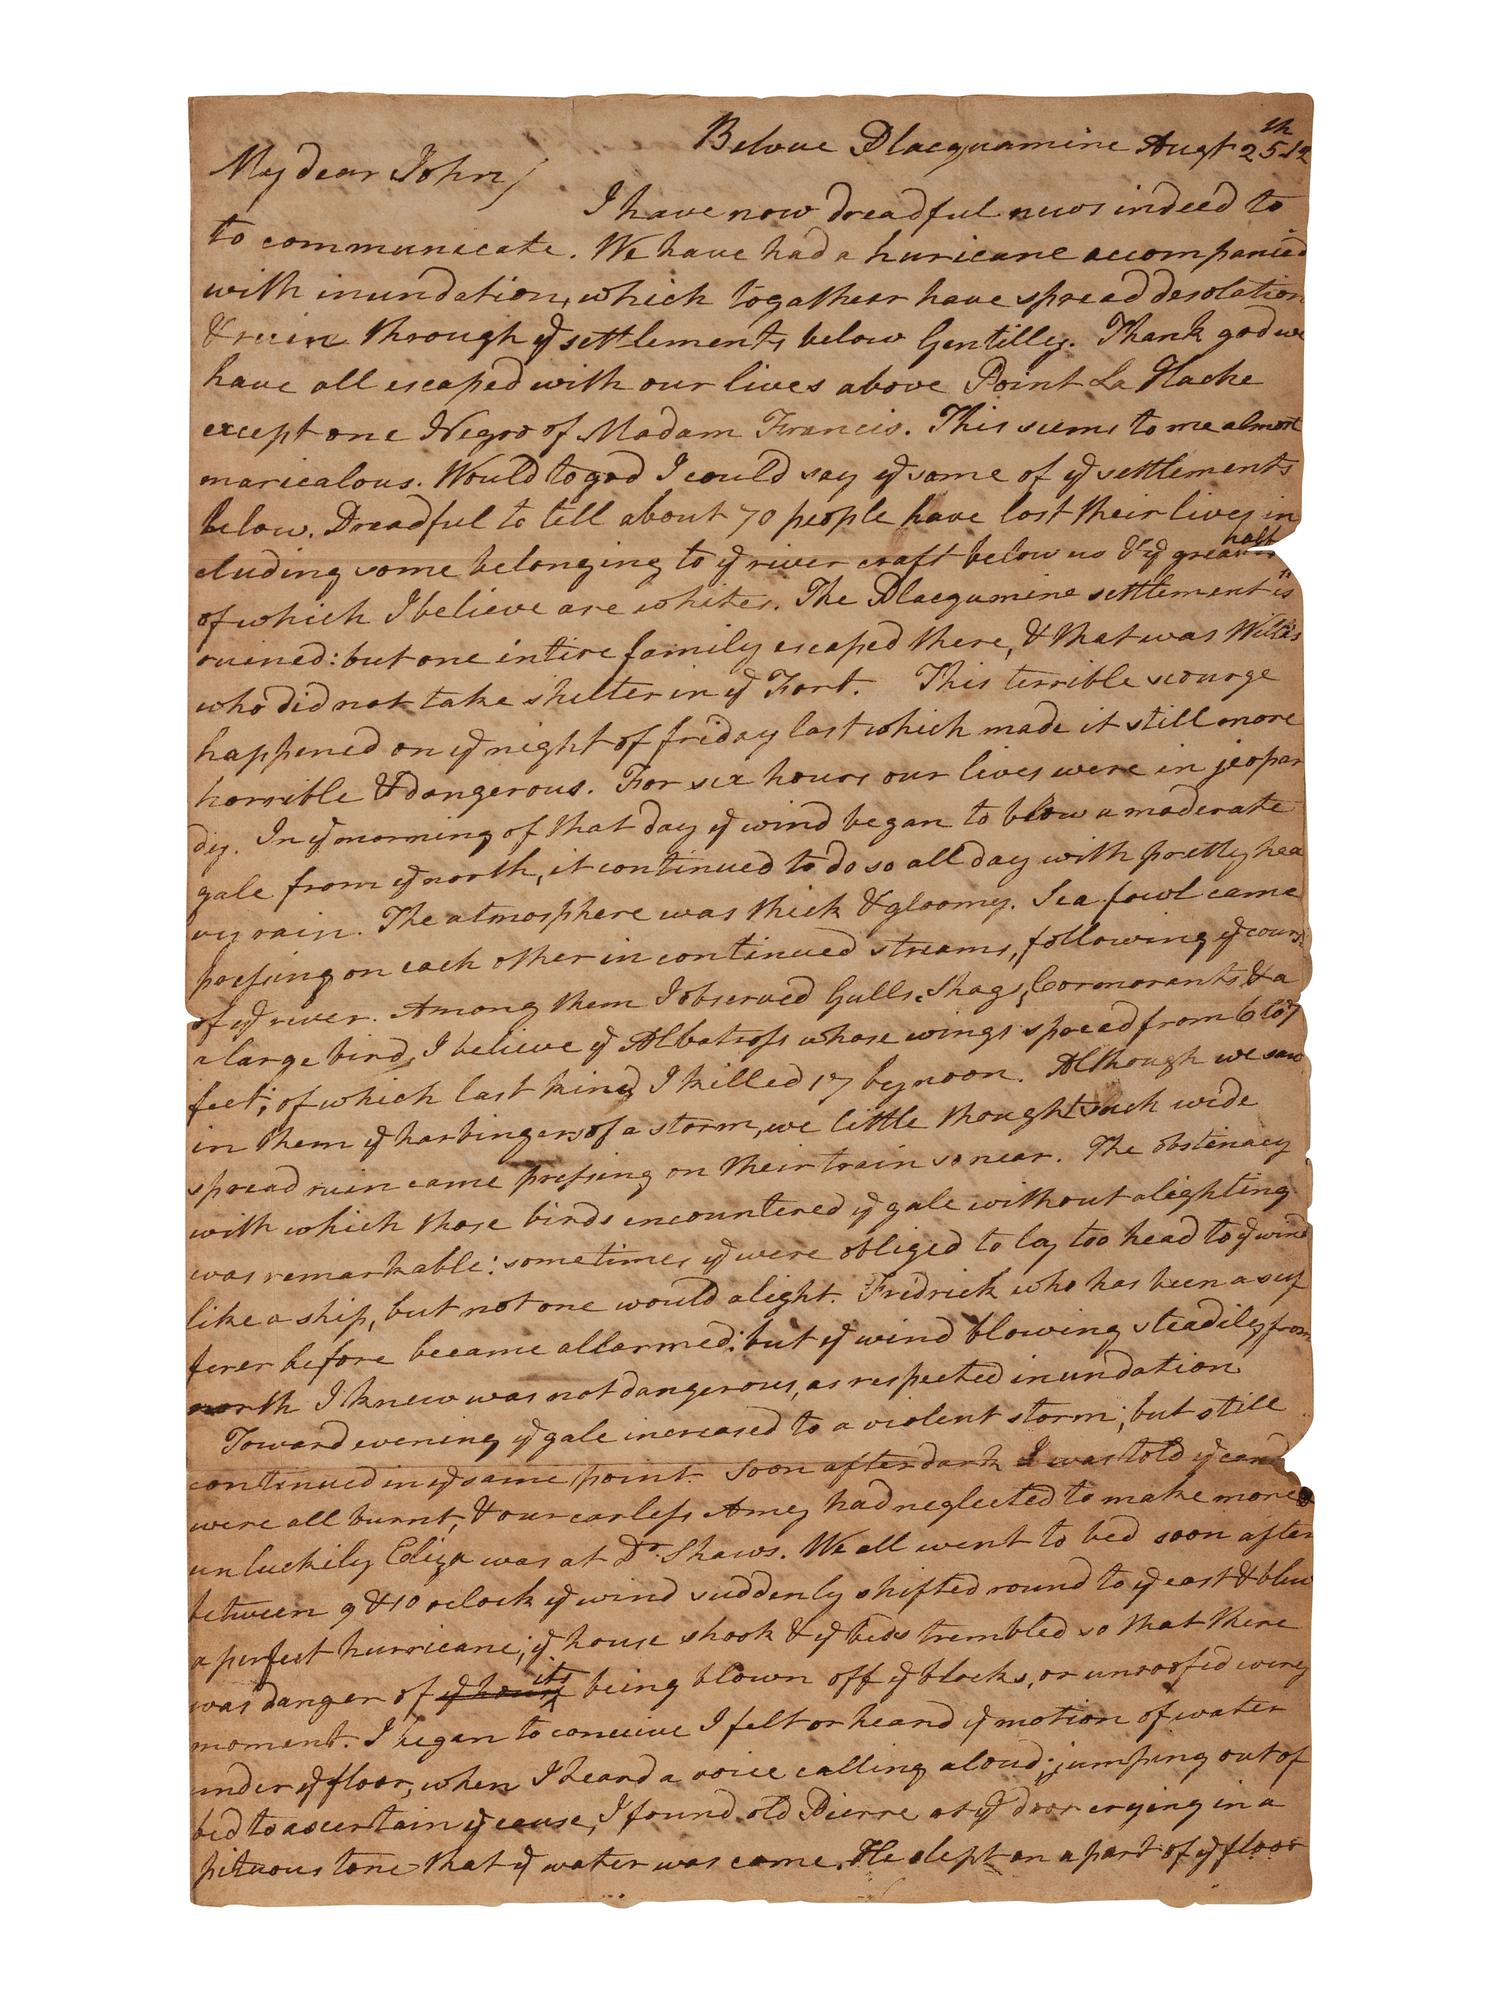 Belvue Placquamine Augt 25th 12
My dear John,
I have now dreadful news indeed to
to communicate. We have had a huricane accompanied
with inundation, which togatherr have spread desolation
& ruin through ye settlements below Gentilly. Thank god we
have all escaped with our lives above Point La Hache
except one Negro of Madam Francis. This seems to me almost
maricalous. Would to god I could say ye same of ye settlements
below. Dreadful to tell about 70 people have lost their lives in
cluding some belonging to ye river craft below us & ye greater half
of which I believe are whites. The Placqumine settlement is
ruined: but one intire family escaped there, & that was
who did not take shelter in ye Fort. This terrible scourge
happened on ye night of friday last which made it still more
horrible & dangerous. For six hours our lives were in jeopar
dy. In ye morning of that day ye wind began to blow a moderate
gale from ye north, it continued to do so all day with pretty hea
vy rain. The atmosphere was thick & gloomy. Sea fowl came
pressing on each other in continued streams, following ye cours
of ye river. Among them I observed Gulls, Shags, Cormorants & a
a large bird, I believe ye Albatross whose wings spread from 6 to 7
feet; of which last kind I killed 17 by noon. Although we saw
in them ye harbingers of a storm, we little thought such wide
spread ruin came pressing on their train so near. The obstinacy
with which those birds encountered ye gale without alighting
was remarkable: sometimes ye were obliged to lay too head to ye wind
like a ship, but not one would alight. Fredrick who has been a suf
ferer before became allarmed: but ye wind blowing steadily from
north I knew was not dangerous, as respected inundation
Toward evening ye gale increased to a violent storm; but still
continued in ye same point. Soon after dark I was told ye cand
were all burnt, & our carless Amey had neglected to make more
unluckily Eliza was at Dr. Shaws. We all went to bed soon after
between 9 & 10 oclock ye wind suddenly shifted round to ye east & blew
a perfect hurricane; ye house shook & ye beds trembled so that there
was danger of ye house its being blown off ye blocks, or unroofed every
moment. I began to conceive I felt or heard ye motion of water
under ye floor, when I heard a voice calling aloud; jumping out of
bed to ascertain ye cause, I found old Pierre at ye door crying in a
pituous tone that ye water was come. He slept on a part of ye floor